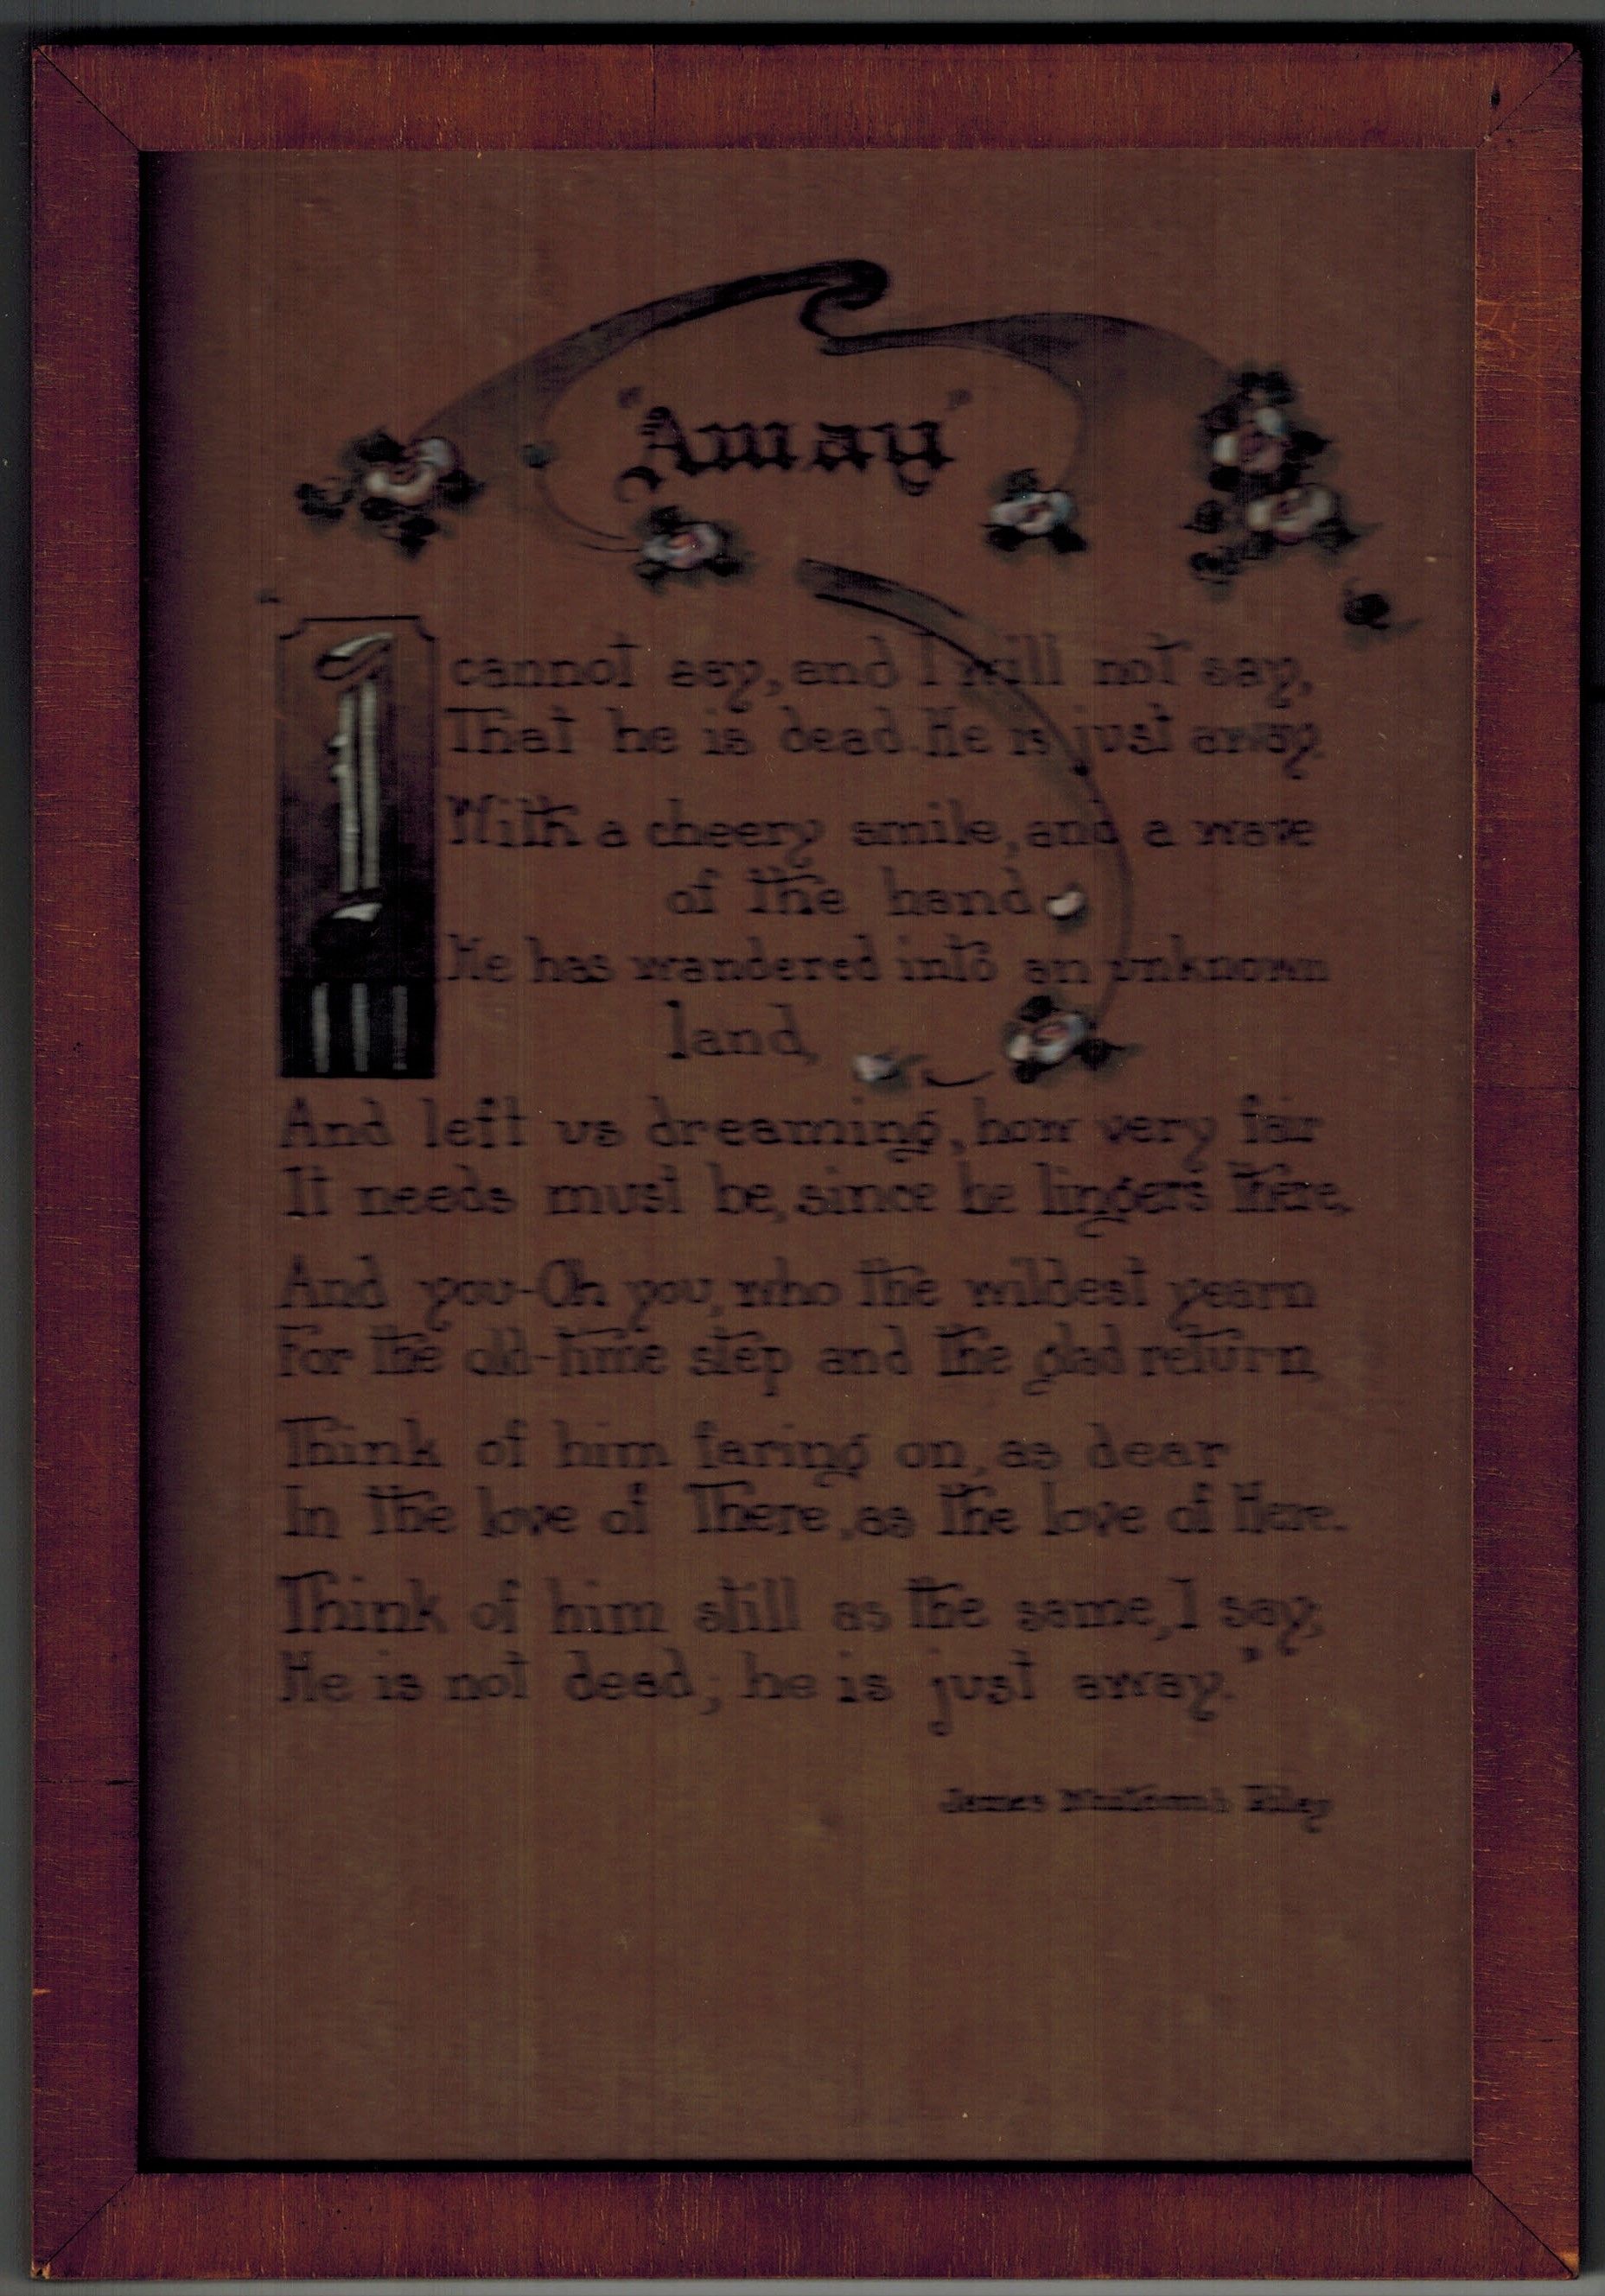 "Away"
I cannot say, and I will not say,
That he is dead. He is just away.
With a cheery smile, and a wave
of the hand
He has wandered into an unknown
land,
And left us dreaming, how very fair
It needs must be, since he lingers there.
And you-Oh you, who the wildest yearn
For the old-time step and the glad return,
Think of him faring on, as dear
In the love of There, as the love of Here.
Think of him still as the same, I say;
He is not dead; he is just away."
James Whitcomb Riley